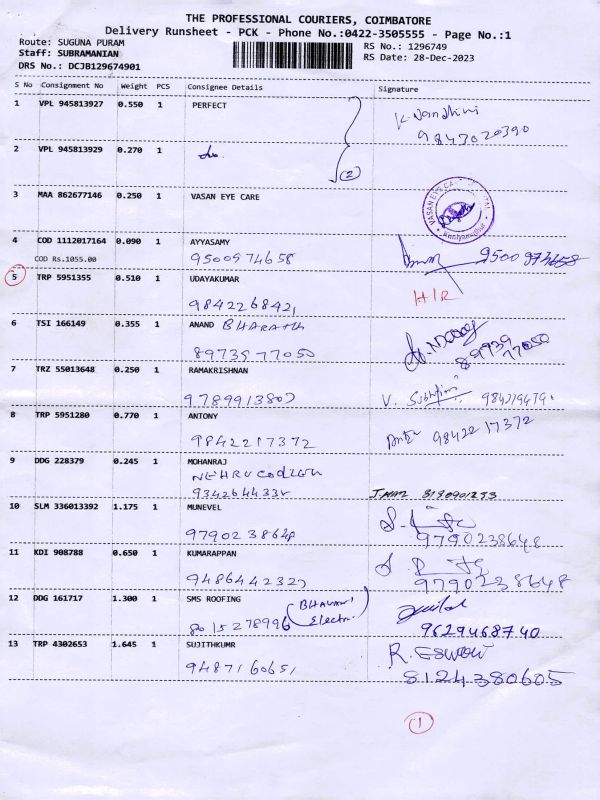 THE PROFESSIONAL COURIERS, COIMBATORE
Delivery Runsheet - PCK - Phone No.:0422-3505555 - Page No.:1
Route: SUGUNA PURAM RS No.: 1296749
Staff: SUBRAMANIAN RS Date: 28-Dec-2023
DRS No.: DCJB129674901
S No Consignment No Weight PCS Consignee Details Signature
1 VPL 945813927 0.550 1 PERFECT K. Nandhini
9843020390
2 VPL 945813929 0.270 1 do. (2)
3 MAA 862677146 0.250 1 VASAN EYE CARE
4 COD 1112017164 0.090 1 AYYASAMY
COD Rs.1055.00 9500974658 9500974658
5 TRP 5951355 0.510 1 UDAYAKUMAR H/R
9842268421
6 TSI 166149 0.355 1 ANAND BHARATH
8973977050 89739 77050
7 TRZ 55013648 0.250 1 RAMAKRISHNAN
9789913807 V.
8 TRP 5951280 0.770 1 ANTONY
9842217372 9842217372
9 DDG 228379 0.245 1 MOHANRAJ
NEHRU COLLEGE
10 SLM 336013392 1.175 1 MUNEVEL
9790238648 9790238648
11 KDI 908788 0.650 1 KUMARAPPAN
9486442323 9790238648
12 DDG 161717 1.300 1 SMS ROOFING (BHAVANI
8015278996 Electri) 9629468740
13 TRP 4302653 1.645 1 SUJITHKUMR R. ESWARI
9487160651 8124380605
1